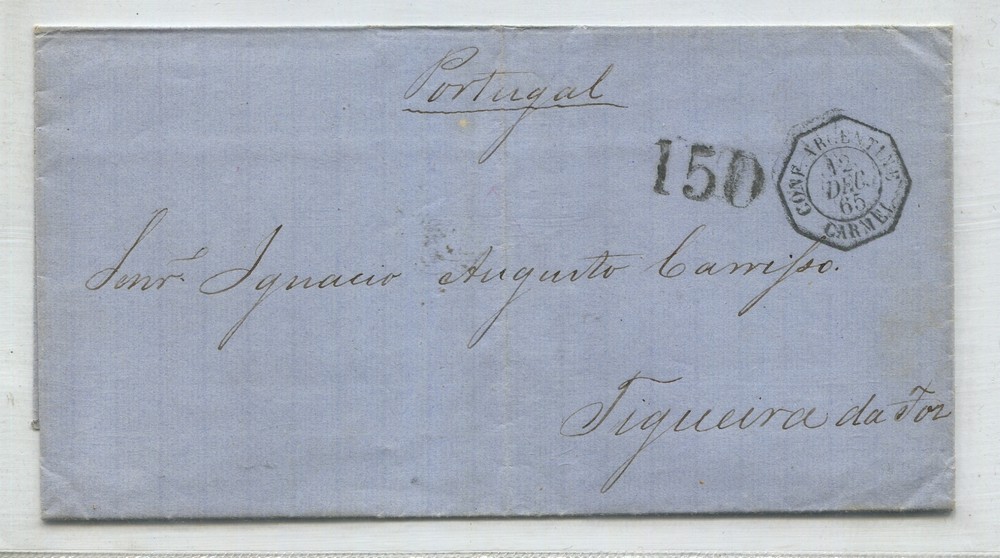 Portugal
150
CONF. ARGENTINE
12
DEC.
65
CARMEL
Senr. Ignacio Augusto Carrisso.
Figueira da Foz